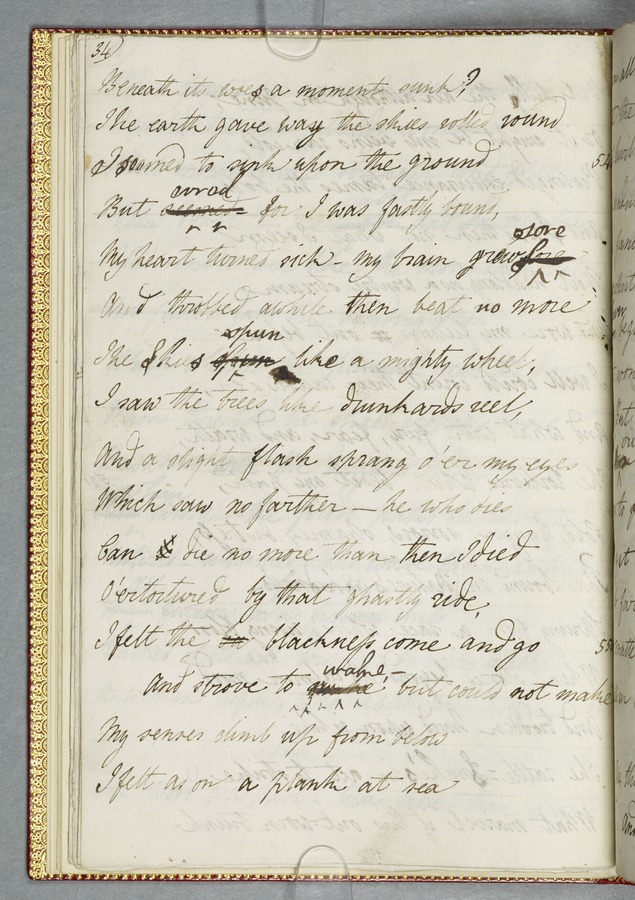 34)
Beneath its woes a moment sunk?
The earth gave way the skies rolled round
I seemed to sink upon the ground
54
wrad
But seemed - for I was fastly bound,
My heart turned sick - my brain grew sore
And throbbed awhile then beat no more
spun
The Skies spun like a mighty wheel,
I saw the trees like drunkards reel,
And a slight flash sprang o'er my eyes
Which saw no farther — he who dies
Can die no more than then I died
O'ertortured by that ghastly ride,
I felt the blackness come and go
550
And strove to wake - but could not make
My senses climb up from below
I felt as on a plank at sea